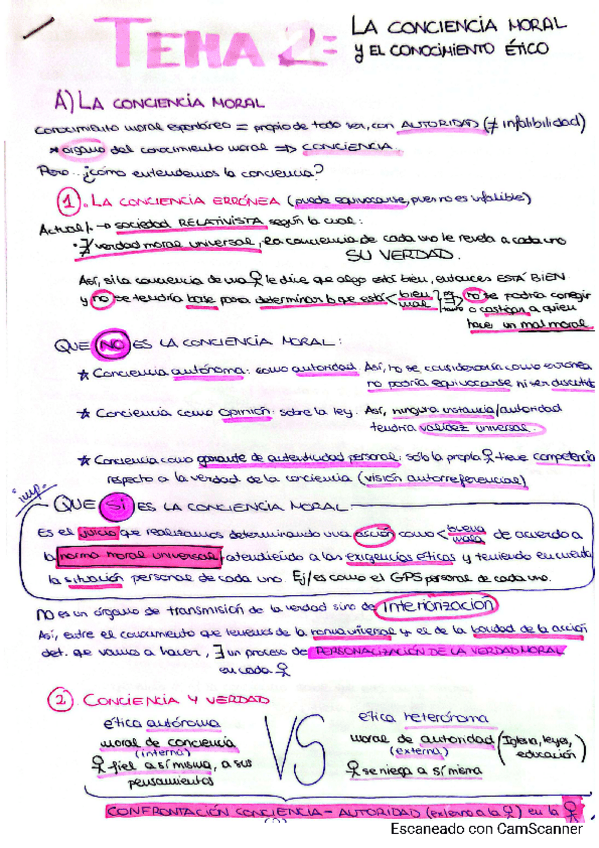 TEMA 2: LA CONCIENCIA MORAL
Y EL CONOCIMIENTO ÉTICO
A) LA CONCIENCIA MORAL
Conocimiento moral espontáneo = propio de todo ser, con AUTORIDAD (≠ infalibilidad)
* órgano del conocimiento moral => CONCIENCIA.
Pero... ¿cómo entendemos la conciencia?
1. LA CONCIENCIA ERRÓNEA (puede equivocarse, pues no es infalible)
Actual/. → sociedad RELATIVISTA según la cual:
· ∄ verdad moral universal, la conciencia de cada uno le revela a cada uno
SU VERDAD.
Así, si la conciencia de una ♀ le dice que algo está bien, entonces ESTÁ BIEN
y no se tendría base para determinar lo que está < bien mal no se podría corregir
o castigar a quien
hace un mal moral
QUE NO ES LA CONCIENCIA MORAL:
★ Conciencia autónoma: como autoridad. Así, no se consideraría como errónea
no podría equivocarse ni ser discutida
★ Conciencia como opinión: sobre la ley. Así, ninguna instancia/autoridad
tendría validez universal.
★ Conciencia como garante de autenticidad personal: sólo la propia ♀ tiene competencia
respecto a la verdad de la conciencia (visión autorreferencial)
imp.
QUE SÍ ES LA CONCIENCIA MORAL
Es el juicio que realizamos determinando una acción como < buena mala de acuerdo a
la norma moral universal, atendiendo a las exigencias éticas y teniendo en cuenta
la situación personal de cada uno. Ej/ es como el GPS personal de cada uno.
No es un órgano de transmisión de la verdad sino de interiorización
Así, entre el conocimiento que tenemos de la norma universal y el de la bondad de la acción
det. que vamos a hacer, ∃ un proceso de PERSONALIZACIÓN DE LA VERDAD MORAL
en cada ♀
2. CONCIENCIA Y VERDAD
ética autónoma VS ética heterónoma
moral de conciencia moral de autoridad (Iglesia, leyes,
(interna) (externa) educación)
♀ fiel a sí misma, a sus ♀ se niega a sí misma
pensamientos
CONFRONTACIÓN CONCIENCIA - AUTORIDAD (externa a la ♀) en la ♀
Escaneado con CamScanner